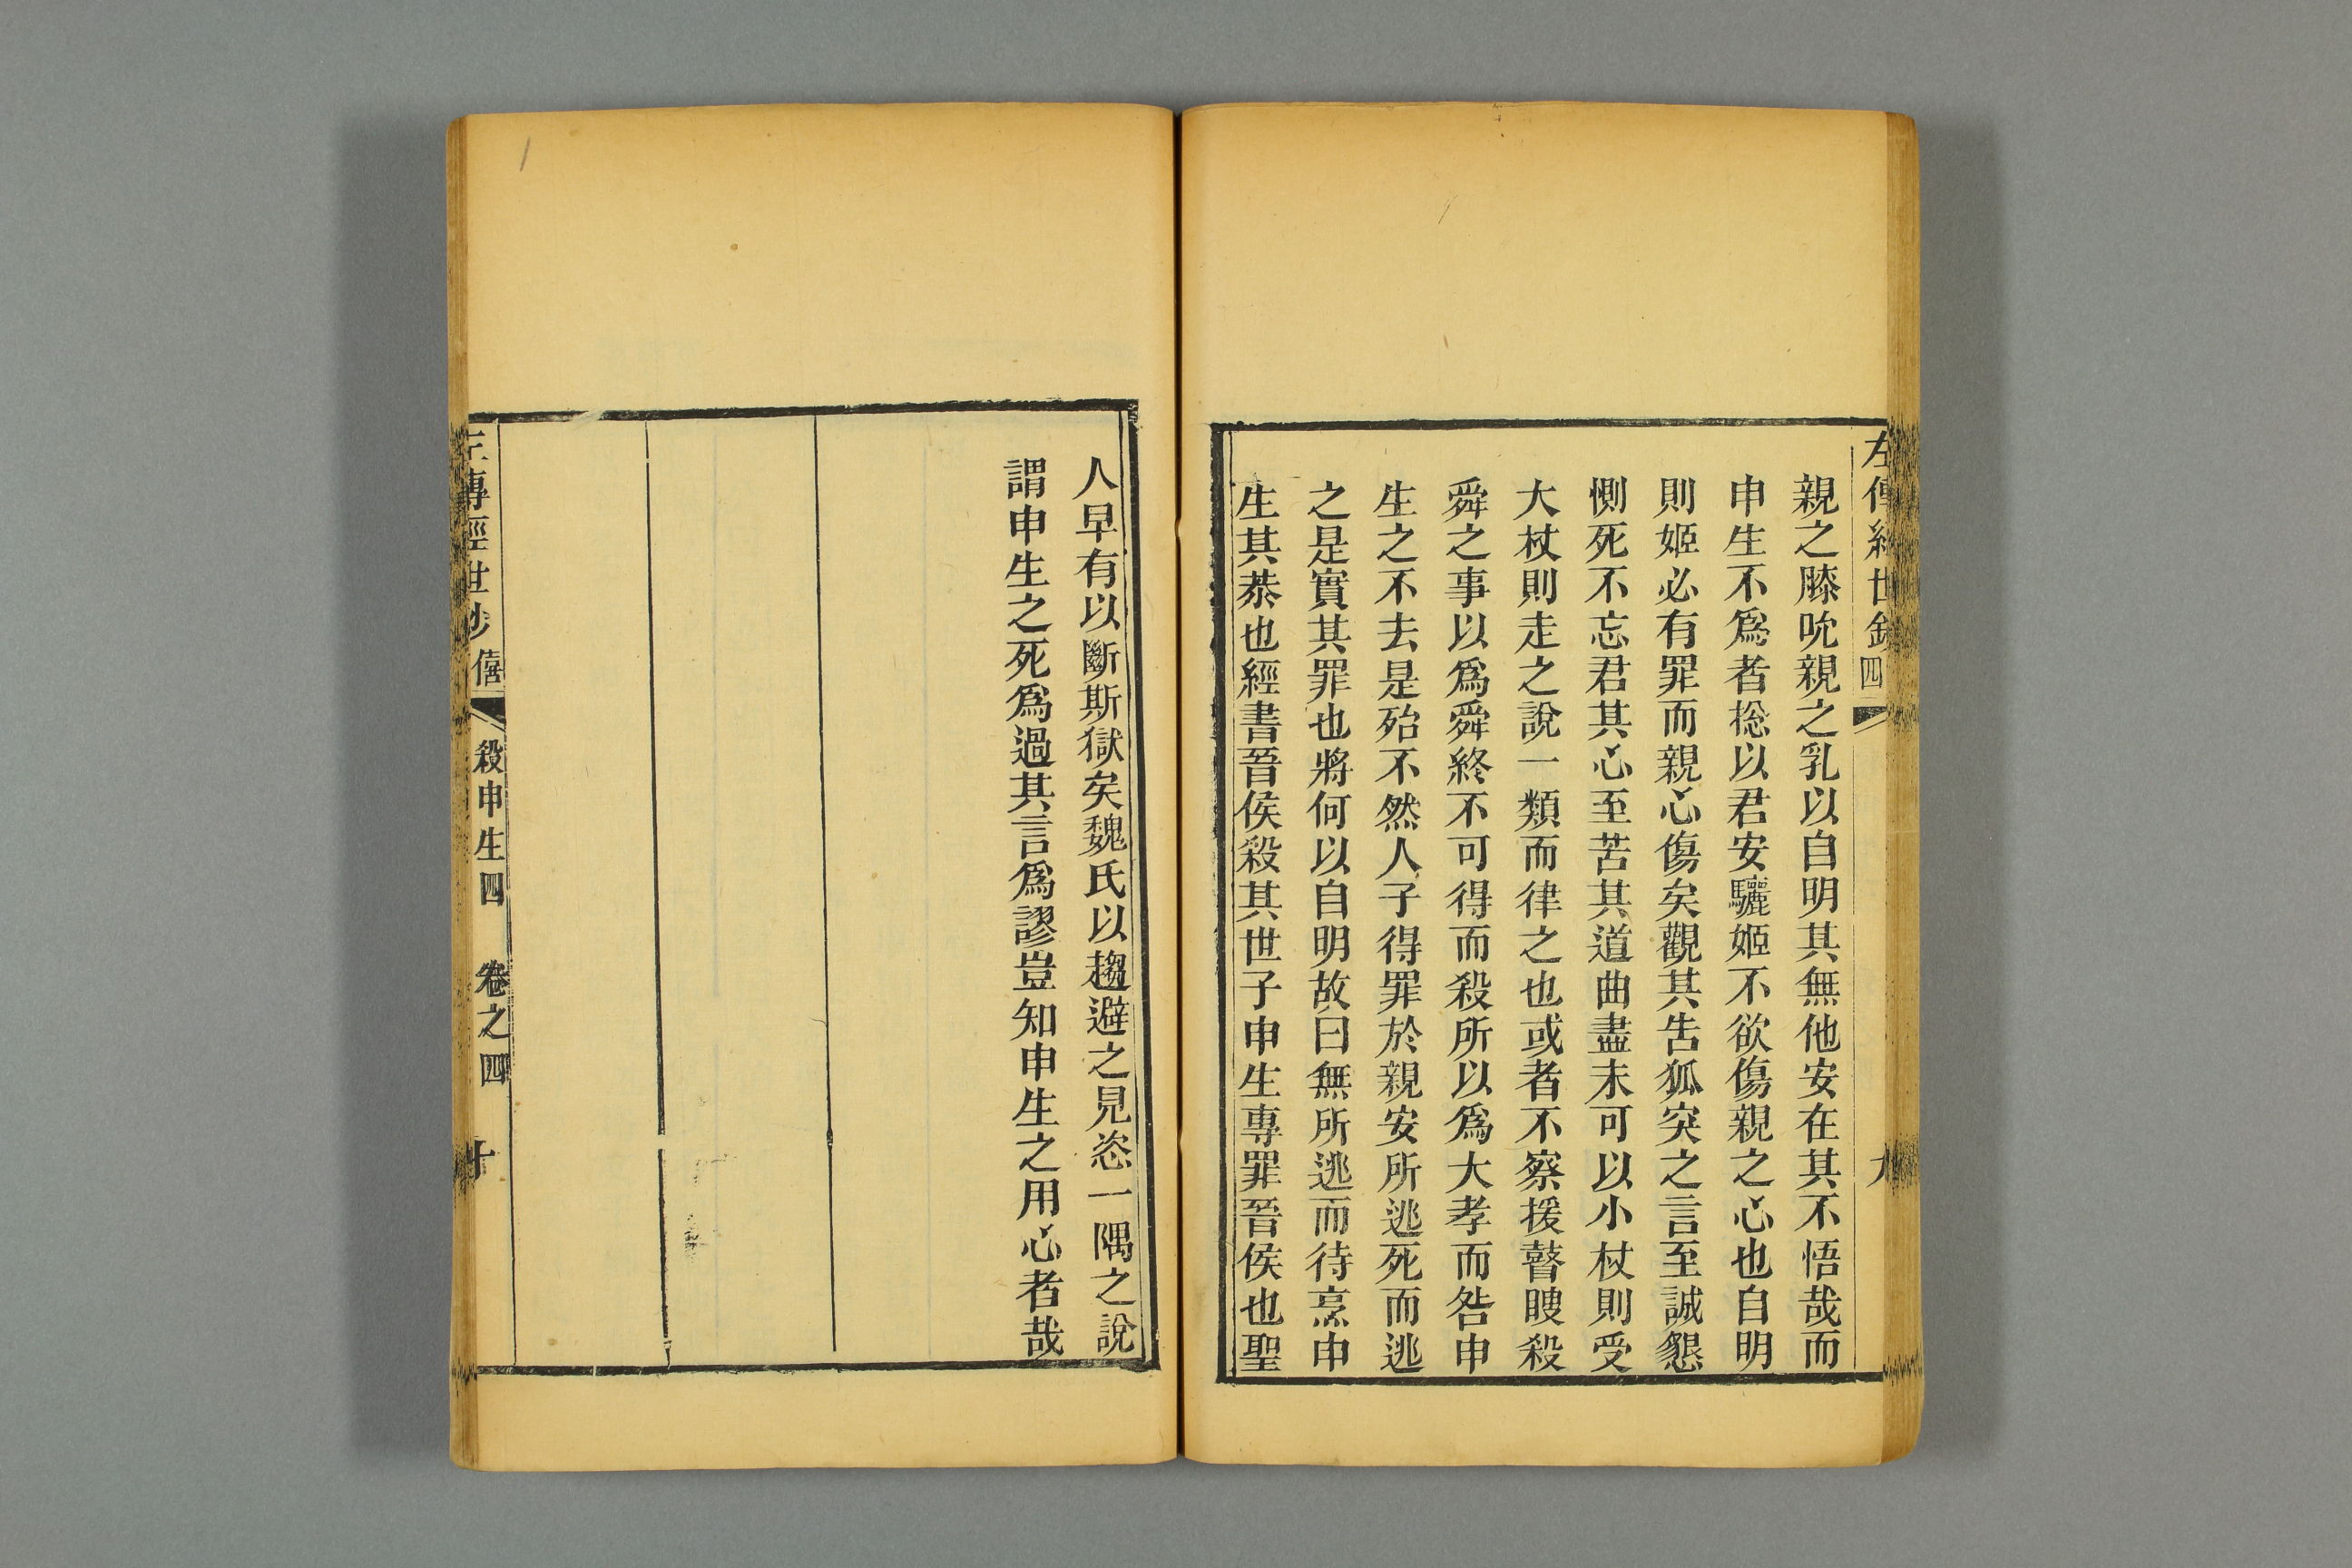 左傳經世鈔 四 九
親之膝吮親之乳以自明其無他安在其不悟哉而
申生不爲者捴以君安驪姬不欲傷親之心也自明
則姬必有罪而親心傷矣觀其告狐突之言至誠懇
惻死不忘君其心至苦其道曲盡未可以小杖則受
大杖則走之說一類而律之也或者不察援瞽瞍殺
舜之事以爲舜終不可得而殺所以爲大孝而咎申
生之不去是殆不然人子得罪於親安所逃死而逃
之是實其罪也將何以自明故曰無所逃而待烹申
生其恭也經書晉侯殺其世子申生專罪晉侯也聖
人早有以斷斯獄矣魏氏以趨避之見恣一隅之說
謂申生之死爲過其言爲謬豈知申生之用心者哉
左傳經世鈔 僖 殺申生四 卷之四 十